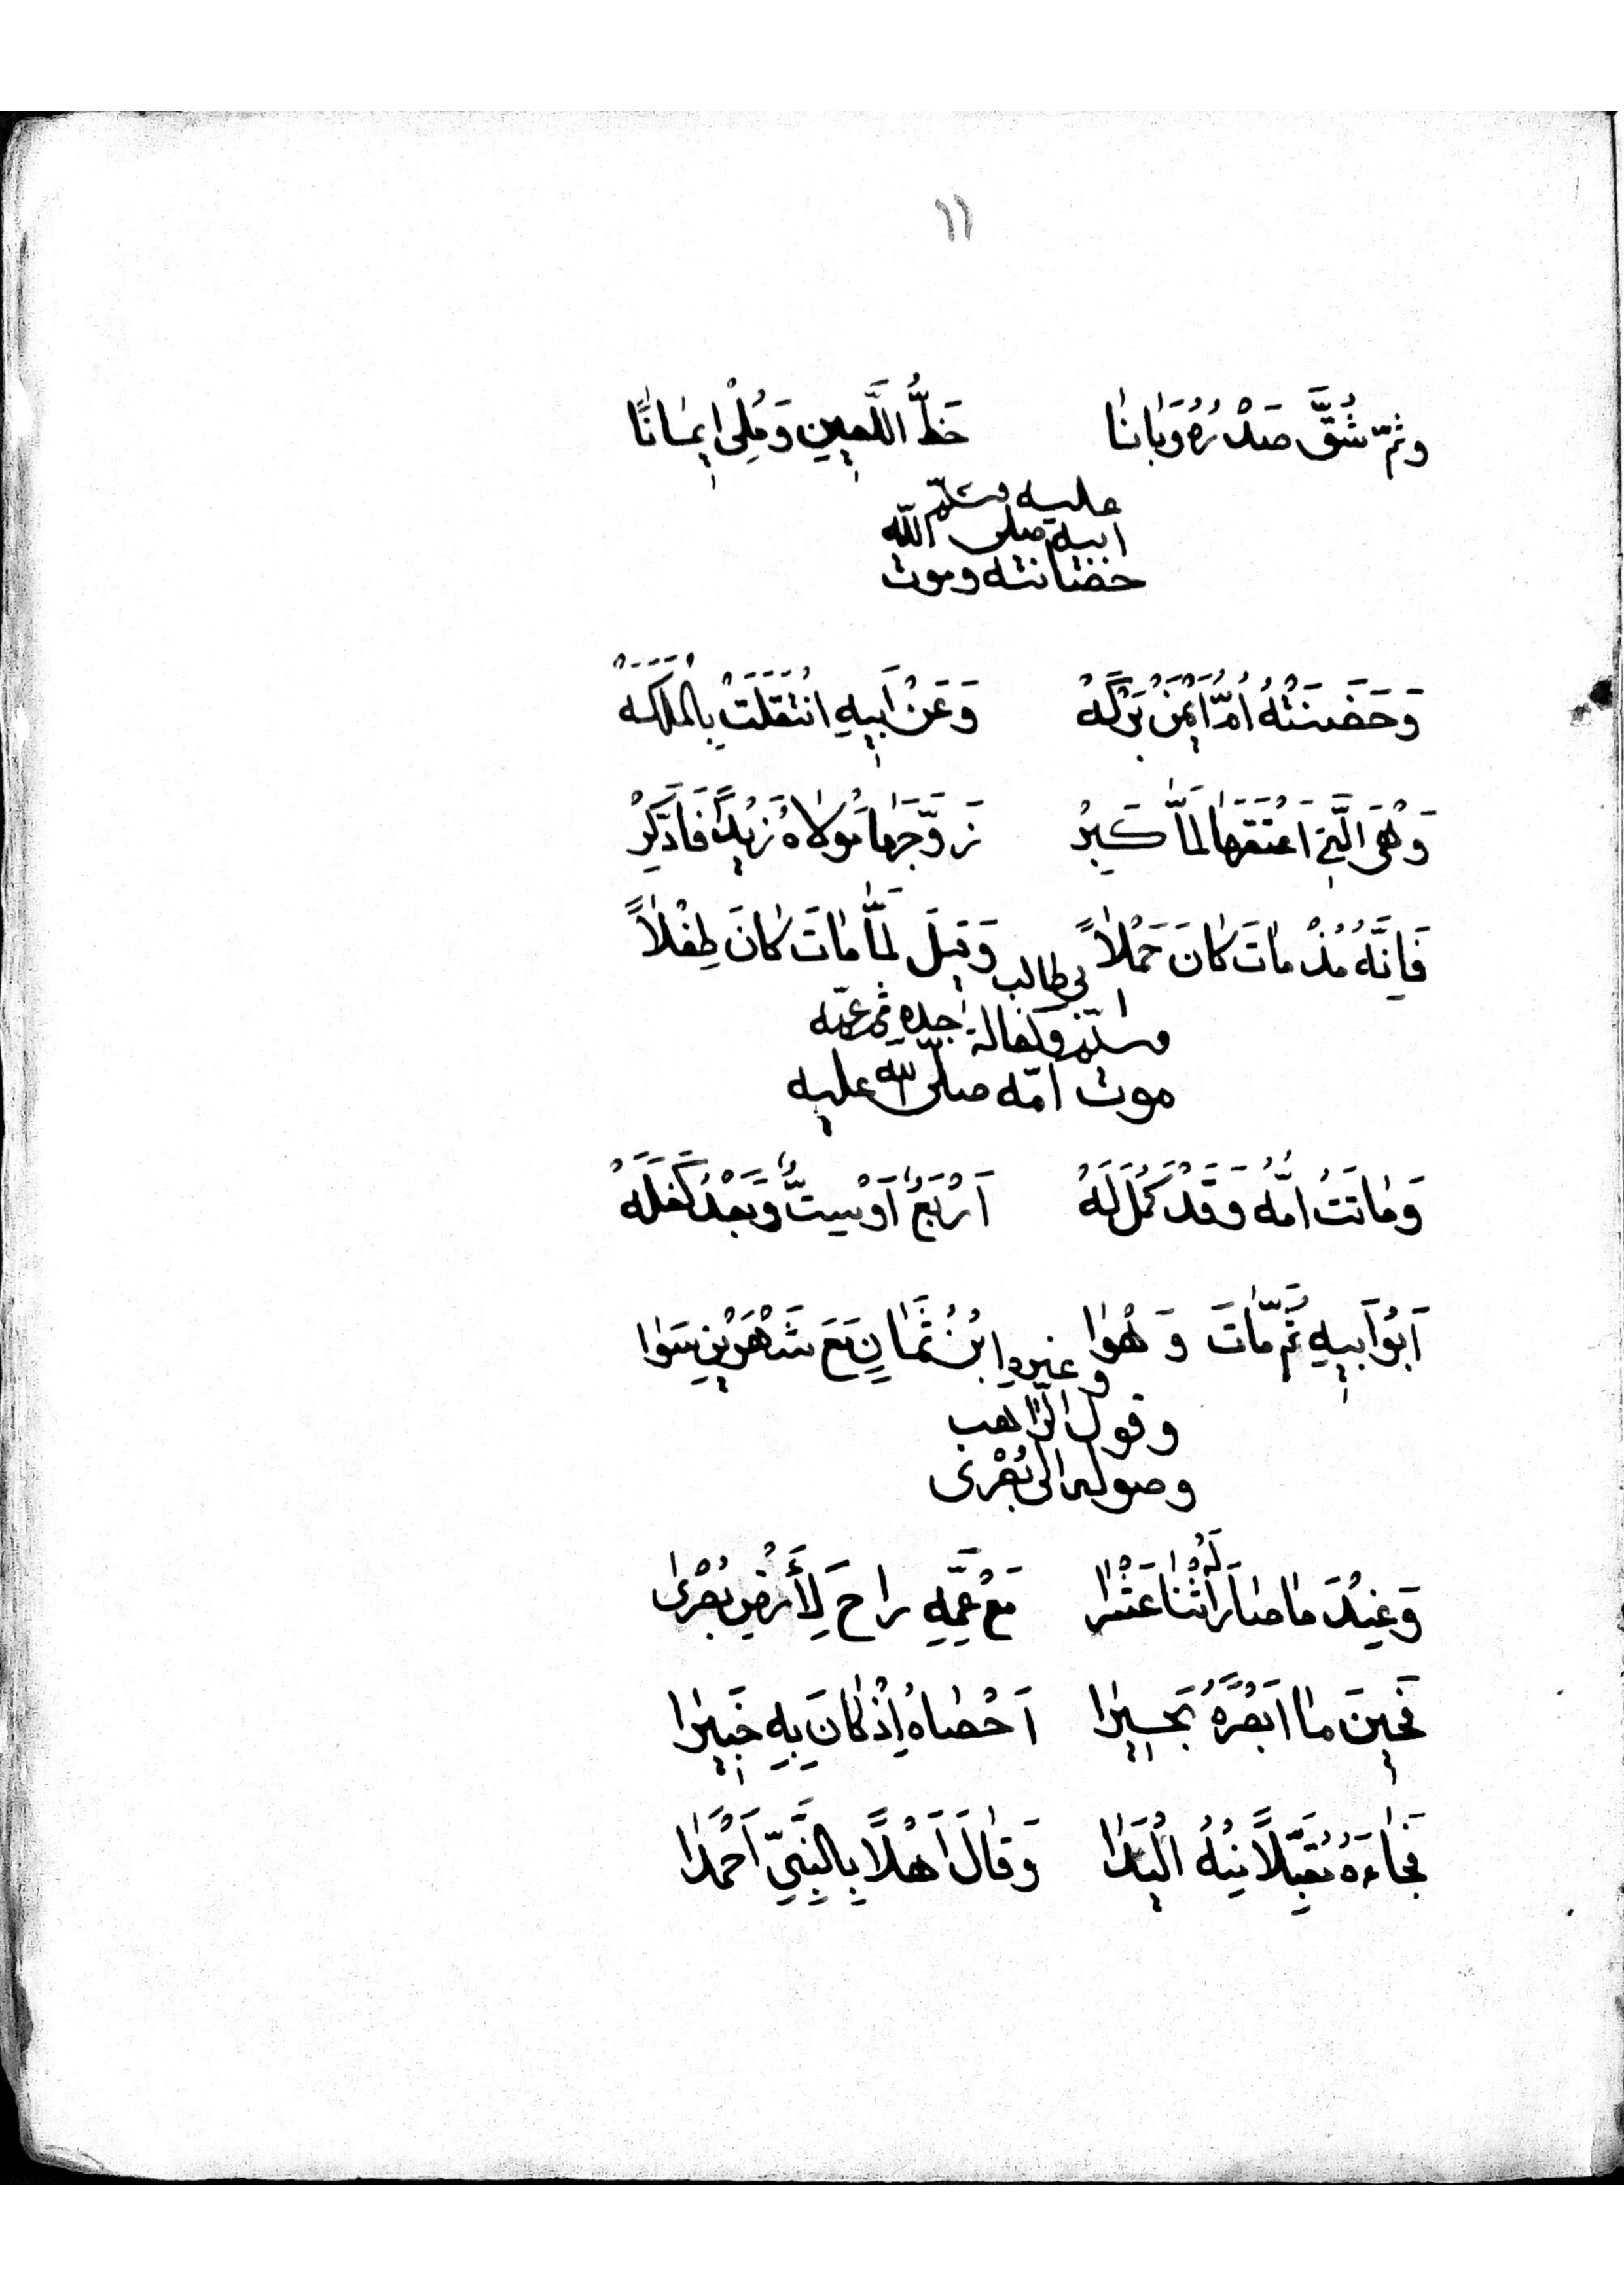 ١١
وَثُمَّ شُقَّ صَدْرُهُ وَبَانَا حَظُّ اللَّعِينِ وَمُلِىْ إِيمَانًا
عليه وسلّم
ابيه صلى اللّه
حضانته وموت
وَحَضَنَتْهُ أُمُّ أَيْمَنْ بَرَكَهْ وَعَنْ أَبِيهِ انْتَقَلَتْ بِالْمَلَكَهْ
وَهْىَ الَّتِى اَعْتَقَهَا لَمَّا كَبِرْ زَوَّجَهَا مَوْلَاهُ زَيْدًا فَادَّكِرْ
فَإِنَّهُ مُذْ مَاتَ كَانَ حَمْلاً وَقِيلَ لَمَّا مَاتَ كَانَ طِفْلاً
بى طالب
وسلّم وكفالة جده ثم عمّه ا
موت امّه صلّى اللّه عليه
وَمَاتَتُ امُّهُ وَقَدْ كَمُلَ لَهُ اَرْبَعٌ اَوْ سِتٌّ وَبَعْدُ كَفَلَهْ
اَبُو اَبِيهِ ثُمَّ مَاتَ وَهْوَا ابْنُ ثَمَانٍ مَعَ شَهْرَيْنِ سَوَا
وغيره
وقول الرّاهب
وصوله الى بُصْرى
وَعِنْدَ مَا صَارَ لَهُ اثْنَا عَشْرَا مَعْ عَمِّهِ رَاحَ لِأَرْضِ بُصْرَى
فَحِينَ مَا اَبْصَرَهُ بَحِيرَا اَحْصَاهُ إِذْ كَانَ بِهِ خَبِيرَا
فَجَاءَهُ مُقَبِّلاً مِنْهُ الْيَدَا وَقَالَ اَهْلاً بِالنَّبِىِّ اَحْمَدَا